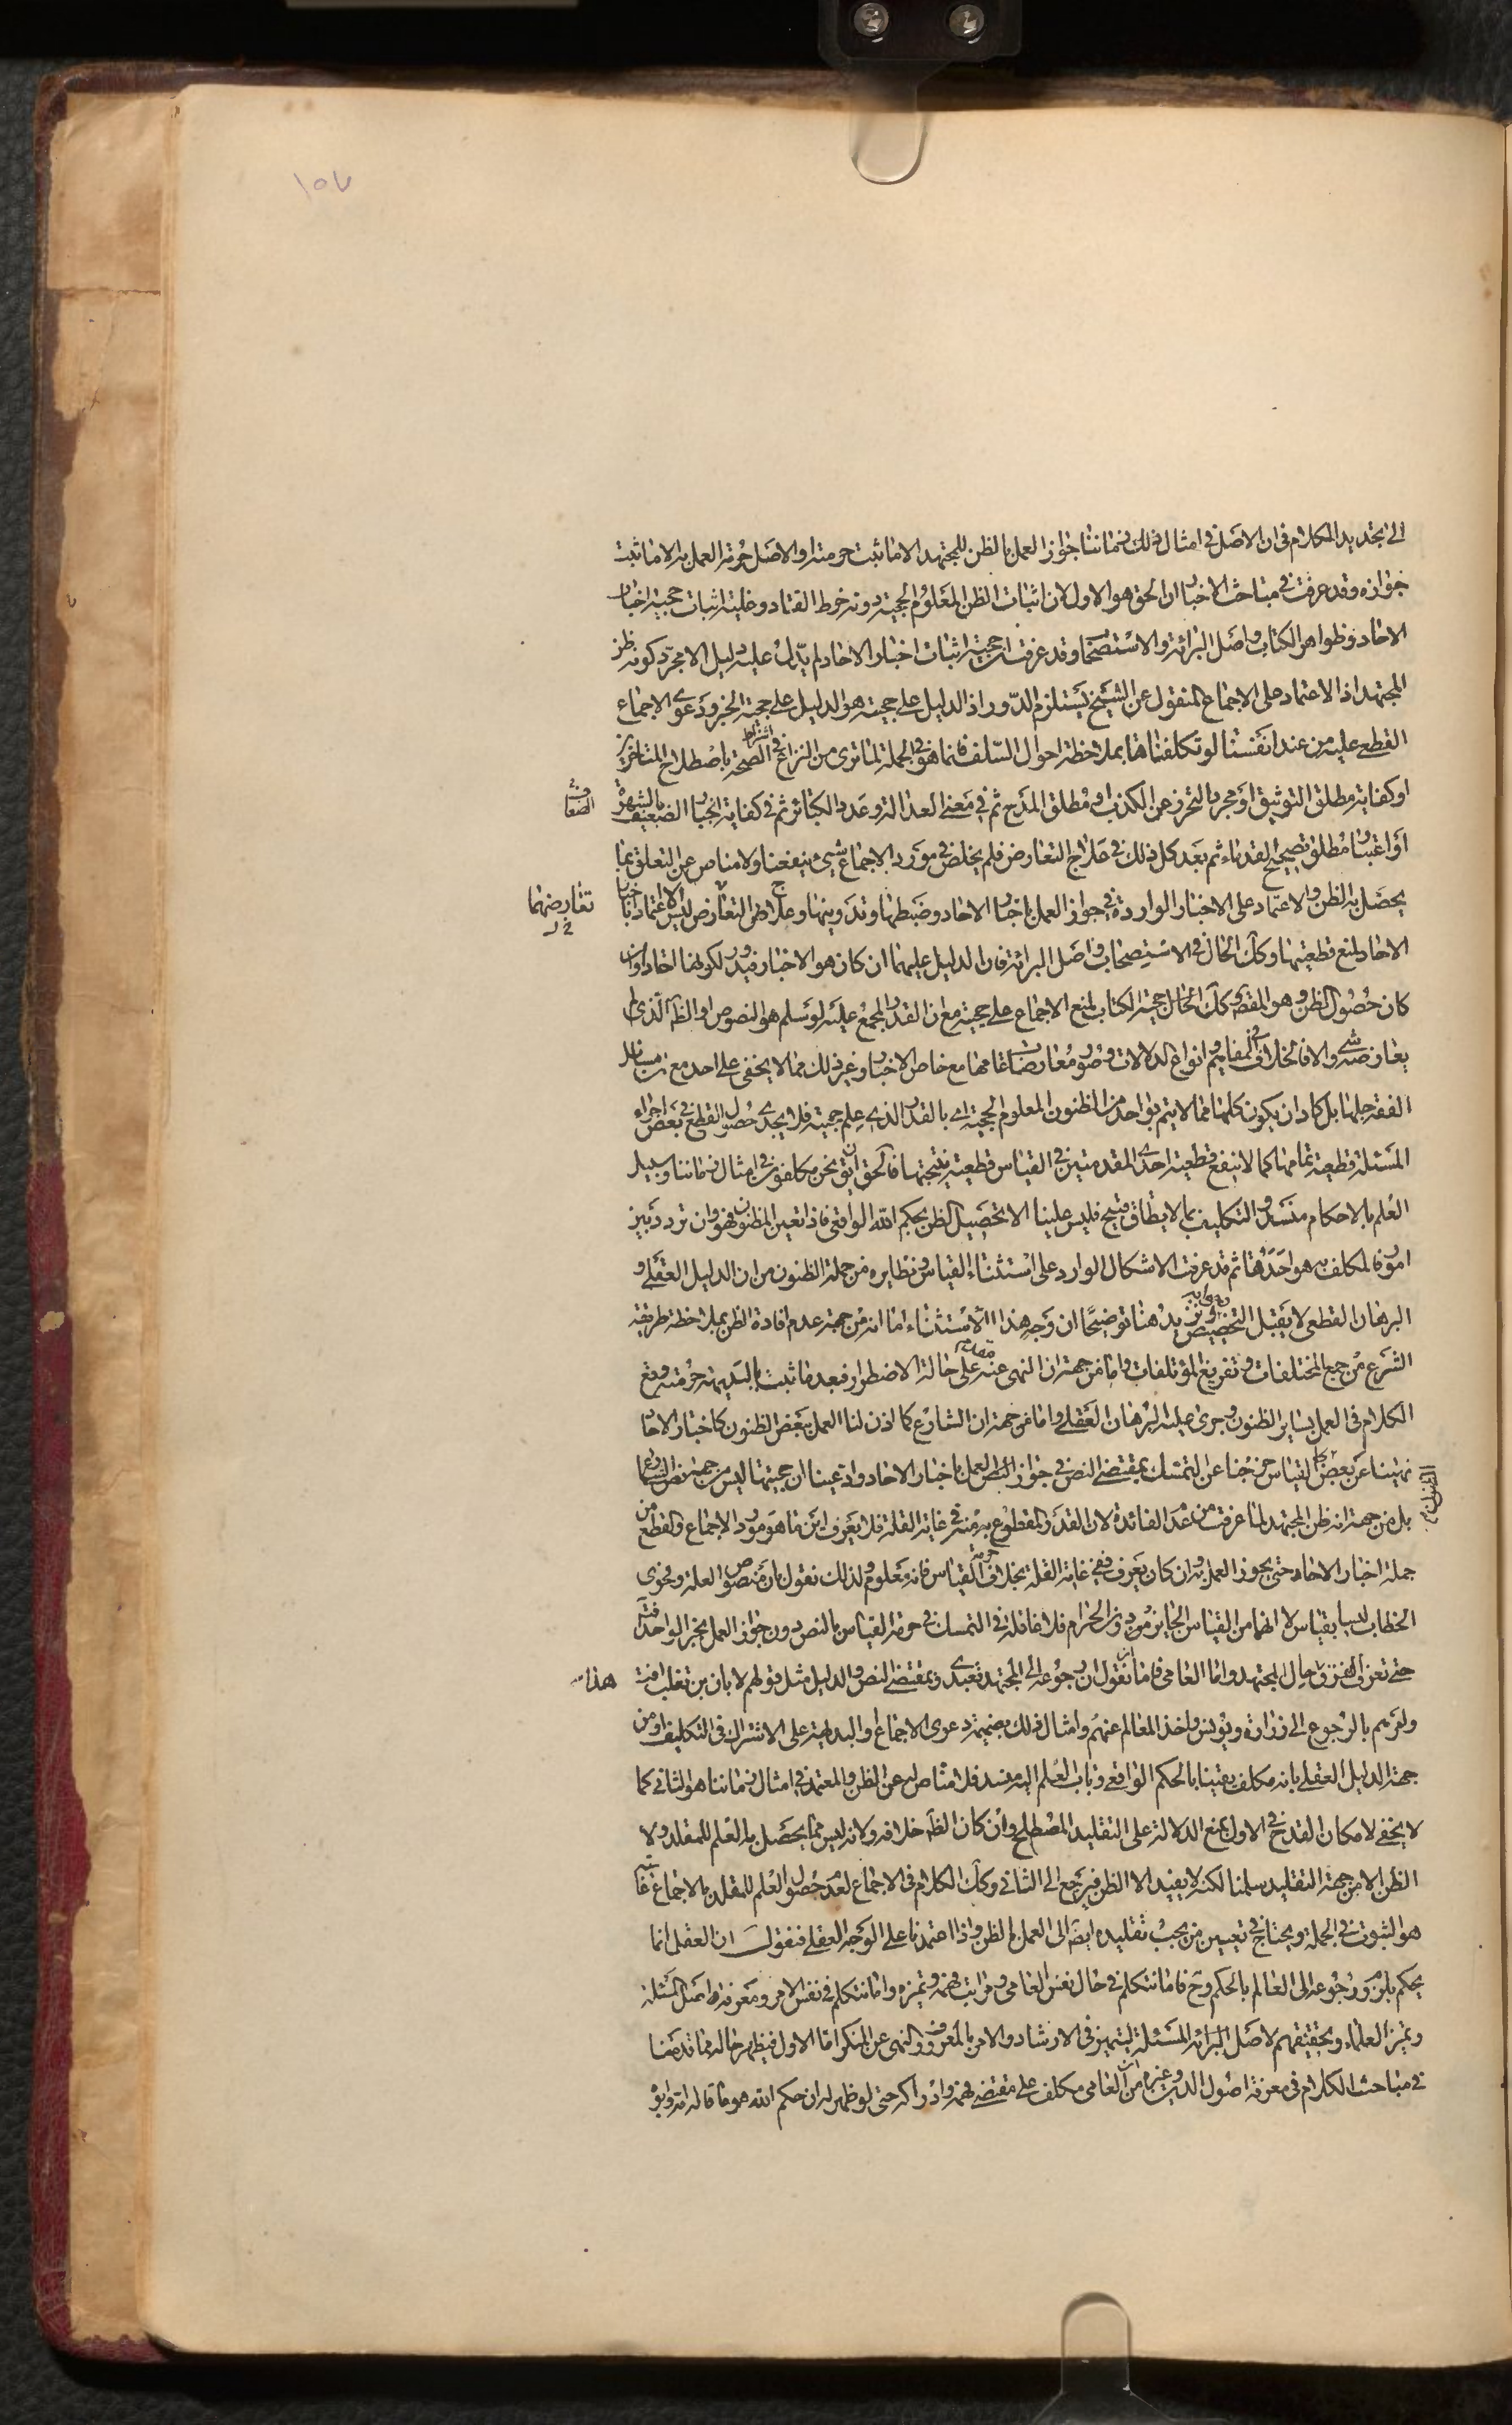 ١٥٧
الى تجديد الكلام فى ان الاصل فى امثال ذلك زماننا جواز العمل بالظن للمجتهد الا ما ثبت حرمته او الاصل حرمة العمل به الا ما ثبت
جوازه وقد عرفت فى مباحث الاخبار ان الحق هو الاول لان اثبات الظن المعلوم الحجية دونه خرط القتاد وغايته اثبات حجية اخبار
الاحاد وظواهر الكتاب واصل البرائة والاستصحاب وقد عرفت ان حجية اثبات اخبار الاحاد لم يدل عليه دليل الا مجرد كونه ظن
المجتهد اذ الاعتماد على الاجماع المنقول عن الشيخ يستلزم الدور اذ الدليل على حجيته هو الدليل على حجية الخبر ودعوى الاجماع
القطع عليه من عند انفسنا لو تكلفناها بملاحظة احوال السلف فانما هو فى الجملة لما ترى من النزاع فى اشتراط الصحة باصطلاح المتاخرين
او كفاية مطلق التوثيق او مجرد التحرز عن الكذب او مطلق المدح ثم فى معنى العدالة وعدد الكبائر ثم فى كفاية انجبار الضعيف بالشهرة
او اعتبار مطلق تصحيح القدماء ثم بعد كل ذلك فى علاج التعارض فلم يخلص فى مورد الاجماع شىء ينفعنا ولا مناص عن التعلق بما
يحصل به الظن والاعتماد على الاخبار الواردة فى جواز العمل باخبار الاحاد وضبطها وتدوينها وعلاج التعارض ليس الا اعتماد باخبار
تعارضهما
الاحاد لمنع قطعيتها وكك الحال فى الاستصحاب واصل البرائة فان الدليل عليهما ان كان هو الاخبار فيدور لكونها اخبار احاد وان
كان حصول الظن وهو المقصد وكك الحال حجية الكتاب لمنع الاجماع على حجيته مع ان القدر المجمع عليه لو سلم هو النصوص او الظاهر الذى لم
يعارضه شىء والا فالخلاف فى المفاهيم وانواع الدلالات وصور معارضات عامها مع خاص الاخبار وغير ذلك مما لا يخفى على احد مع ان مسائل
الفقه جلها بل كاد ان يكون كلها مما لا يتم بواحد من الظنون المعلوم الحجية اى بالقدر الذى علم حجيته فلا يجدى حصول القطع فى بعض اجزاء
المسئلة قطعية تمامها كما لا ينفع قطعية احدى المقدمتين فى القياس قطعية نتيجتها فالحق ان يق نحن مكلفون فى امثال زماننا وسبيل
العلم بالاحكام منسد والتكليف بما لا يطاق قبيح فليس علينا الا تحصيل الظن بحكم الله الواقعى فاذا تعين المظنون فهو وان تردد بين
امور فالمكلف به هو احدها ثم قد عرفت الاشكال الوارد على استثناء القياس ونظايره من جملة الظنون من ان الدليل العقلى و
البرهان القطعى لا يقبل التخصيص ونزيد هنا توضيحا ان وجه هذا الاستثناء اما انه من جهة عدم افادة الظن بملاحظة طريقة
الشرع من جمع المختلفات وتفريق المؤتلفات واما من جهة ان النهى عنه على حالة الاضطرار فبعد ما ثبت بالبديهة حرمته وقع
الكلام فى العمل بساير الظنون وجرى عليه البرهان العقلى واما من جهة ان الشارع كما اذن لنا العمل ببعض الظنون كاخبار الاحاد
نهينا عن بعضها كالقياس خرجنا عن التمسك بمقتضى النص فى جواز العمل باخبار الاحاد وادعينا ان حجيتها ليس من جهة نص الشارع
بل من جهة انه ظن المجتهد لما عرفت من عدم الفائدة لان القدر المقطوع به منه فى غاية القلة فلا يعرف اين ما هو مورد الاجماع والقطع من
جملة اخبار الاحاد حتى يجوز العمل به وان كان يعرف ففى غاية القلة بخلاف حرمة القياس فانه معلوم ولذلك نقول بان منصوص العلة وفحوى
الخطاب ليسا بقياس لا انهما من القياس الجايز دون الحرام فلا غائلة فى التمسك فى حرمة القياس بالنص دون جواز العمل بخبر الواحد فتدبر
حتى تعرف الفرق هذا حال المجتهد واما العامى فاما نقول ان رجوعه الى المجتهد تعبدى وبمقتضى النص والدليل مثل قولهم لابان بن تغلب افت
ولغيرهم بالرجوع الى زرارة ويونس واخذ المعالم عنهم وامثال ذلك بضميمة دعوى الاجماع والبديهة على الاشتراك فى التكليف او من
جهة الدليل العقلى بانه مكلف يقينا بالحكم الواقعى وباب العلم اليه منسد فلا مناص له عن الظن والمعتمد فى امثال زماننا هو الثانى كما
لا يخفى لامكان القدح فى الاول بمنع الدلالة على التقليد المصطلح وان كان الظاهر خلافه ولانه ليس مما يحصل به العلم للمقلد ولا
الظن الا من جهة التقليد سلمنا لكنه لا يفيد الا الظن فيرجع الى الثانى وكك الكلام فى الاجماع لعدم حصول العلم للمقلد بالاجماع غايته
هو الثبوت فى الجملة ويحتاج فى تعيين من يجب تقليده ايضا الى العمل بالظن واذا اعتمدنا على الوجه العقلى فنقول ان العقل انما
يحكم بلزوم رجوعه الى العالم بالحكم وح فاما نتكلم فى حال نفس العامى ومراتب فهمه وتميزه واما نتكلم فى نفس الامر ومعرفة اصل المسئلة
وتميز العلماء وتحقيقهم لاصل المسئلة ليتميز فى الارشاد والامر بالمعروف والنهى عن المنكر اما الاول فيظهر حاله مما قدمنا
فى مباحث الكلام فى معرفة اصول الدين وغيره من ان العامى مكلف على مقتضى فهمه وادراكه حتى لو ظهر له ان حكم الله هو ما قاله ابوه